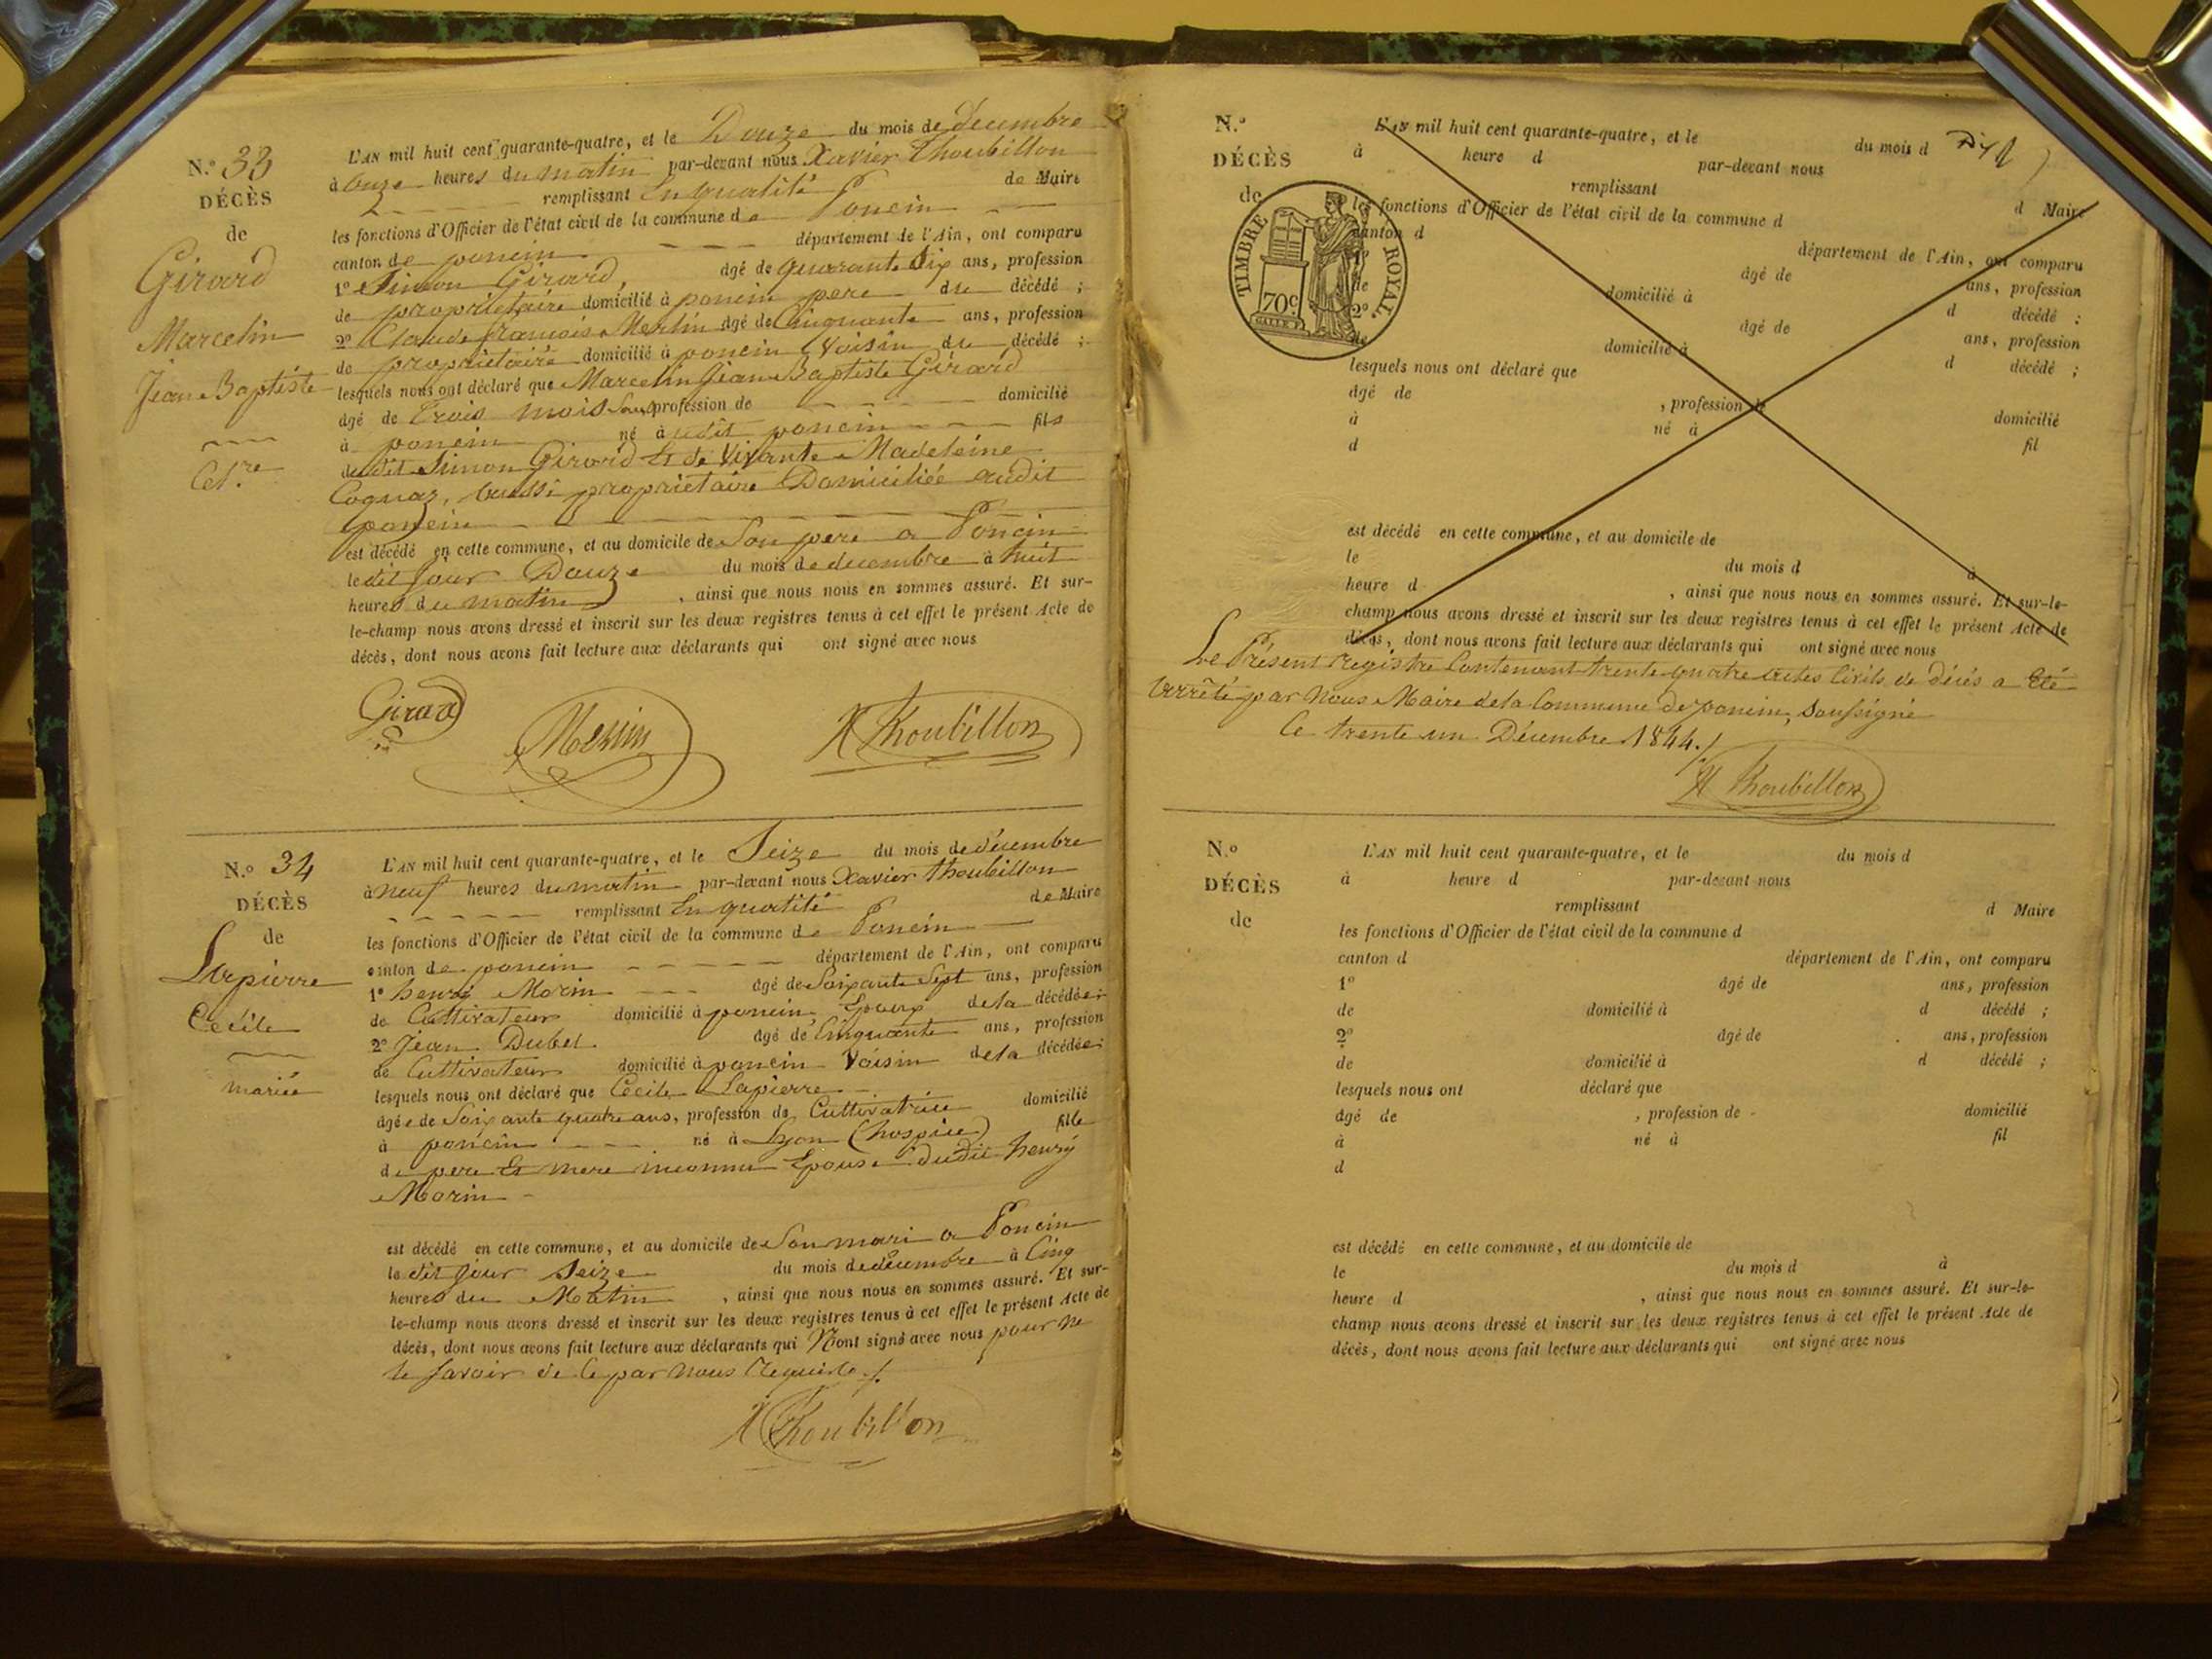 N.° 33
DÉCÈS
de
Girard
Marcelin
Jean Baptiste
Cel.re
L'AN mil huit cent quarante-quatre, et le Douze du mois de decembre
à onze heures du matin par-devant nous Xavier Thoubillon
remplissant En qualité de Maire
les fonctions d'Officier de l'état civil de la commune de Poncin
canton de poncin département de l'Ain, ont comparu
1° Simon Girard, âgé de quarante Six ans, profession
de propriétaire domicilié à poncin pere du décédé ;
2° Claude francois Merlin âgé de Cinquante ans, profession
de propriétaire domicilié à poncin Voisin du décédé ;
lesquels nous ont déclaré que Marcelin Jean Baptiste Girard
âgé de trois mois Sans profession de domicilié
à poncin né à udit poncin fils
dudit Simon Girard Et de Vivante Madeleine
Cognaz, aussi propriétaire Domiciliée audit
poncin
est décédé en cette commune, et au domicile de Son pere a Poncin
le dit jour Douze du mois de decembre à huit
heures du matin, ainsi que nous nous en sommes assuré. Et sur-
le-champ nous avons dressé et inscrit sur les deux registres tenus à cet effet le présent Acte de
décès, dont nous avons fait lecture aux déclarants qui ont signé avec nous
Girard Merlin X Thoubillon
N.° 34
DÉCÈS
de
Lapierre
Cecile
mariée
L'AN mil huit cent quarante-quatre, et le Seize du mois de décembre
à neuf heures du matin par-devant nous Xavier thoubillon
remplissant En qualité de Maire
les fonctions d'Officier de l'état civil de la commune de Poncin
canton de poncin département de l'Ain, ont comparu
1° henry Morin âgé de Soixante Sept ans, profession
de Cultivateur domicilié à poncin Epoux de la décédée ;
2° Jean Dubet âgé de Cinquante ans, profession
de Cultivateur domicilié à poncin Voisin de la décédée ;
lesquels nous ont déclaré que Cecile Lapierre
âgée de Soixante quatre ans, profession de Cultivatrice domicilié
à poncin né à Lyon (hospice) fille
de pere Et mere inconnu Epouse dudit henry
Morin
est décédé en cette commune, et au domicile de Son mari a Poncin
le dit jour Seize du mois de décembre à Cinq
heures du Matin, ainsi que nous nous en sommes assuré. Et sur-
le-champ nous avons dressé et inscrit sur les deux registres tenus à cet effet le présent Acte de
décès, dont nous avons fait lecture aux déclarants qui N'ont signé avec nous pour ne
le Savoir de Ce par nous Requis
X Thoubillon
N.°
DÉCÈS
de
TIMBRE ROYAL
70c.
L'AN mil huit cent quarante-quatre, et le du mois d
à heure d par-devant nous
remplissant d Maire
les fonctions d'Officier de l'état civil de la commune d
canton d département de l'Ain, ont comparu
1° âgé de ans, profession
de domicilié à d décédé ;
2° âgé de ans, profession
de domicilié à d décédé ;
lesquels nous ont déclaré que
âgé de , profession de domicilié
à né à fil
d
est décédé en cette commune, et au domicile de
le du mois d à
heure d , ainsi que nous nous en sommes assuré. Et sur-le-
champ nous avons dressé et inscrit sur les deux registres tenus à cet effet le présent Acte de
décès, dont nous avons fait lecture aux déclarants qui ont signé avec nous
Le Présent registre Contenant trente quatre actes Civils de décés a Eté
Arrêté par Nous Maire de la Commune de poncin, Soussigné
Ce trente un Décembre 1844.
X Thoubillon
N.°
DÉCÈS
de
L'AN mil huit cent quarante-quatre, et le du mois d
à heure d par-devant nous
remplissant d Maire
les fonctions d'Officier de l'état civil de la commune d
canton d département de l'Ain, ont comparu
1° âgé de ans, profession
de domicilié à d décédé ;
2° âgé de ans, profession
de domicilié à d décédé ;
lesquels nous ont déclaré que
âgé de , profession de domicilié
à né à fil
d
est décédé en cette commune, et au domicile de
le du mois d à
heure d , ainsi que nous nous en sommes assuré. Et sur-le-
champ nous avons dressé et inscrit sur les deux registres tenus à cet effet le présent Acte de
décès, dont nous avons fait lecture aux déclarants qui ont signé avec nous